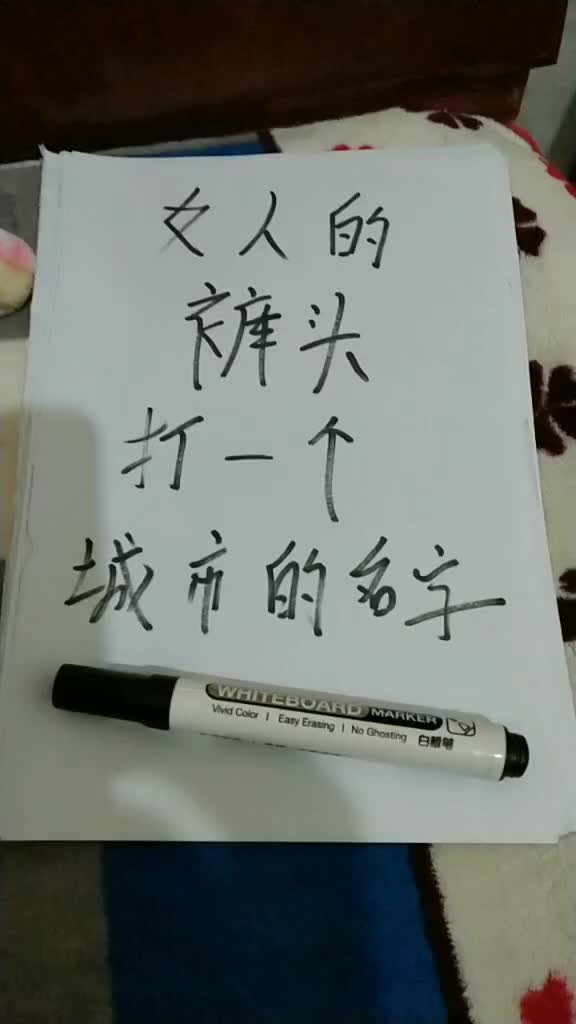 女人的
裤头
打一个
城市的名字
WHITEBOARD MARKER
Vivid Color | Easy Erasing | No Ghosting 白板笔